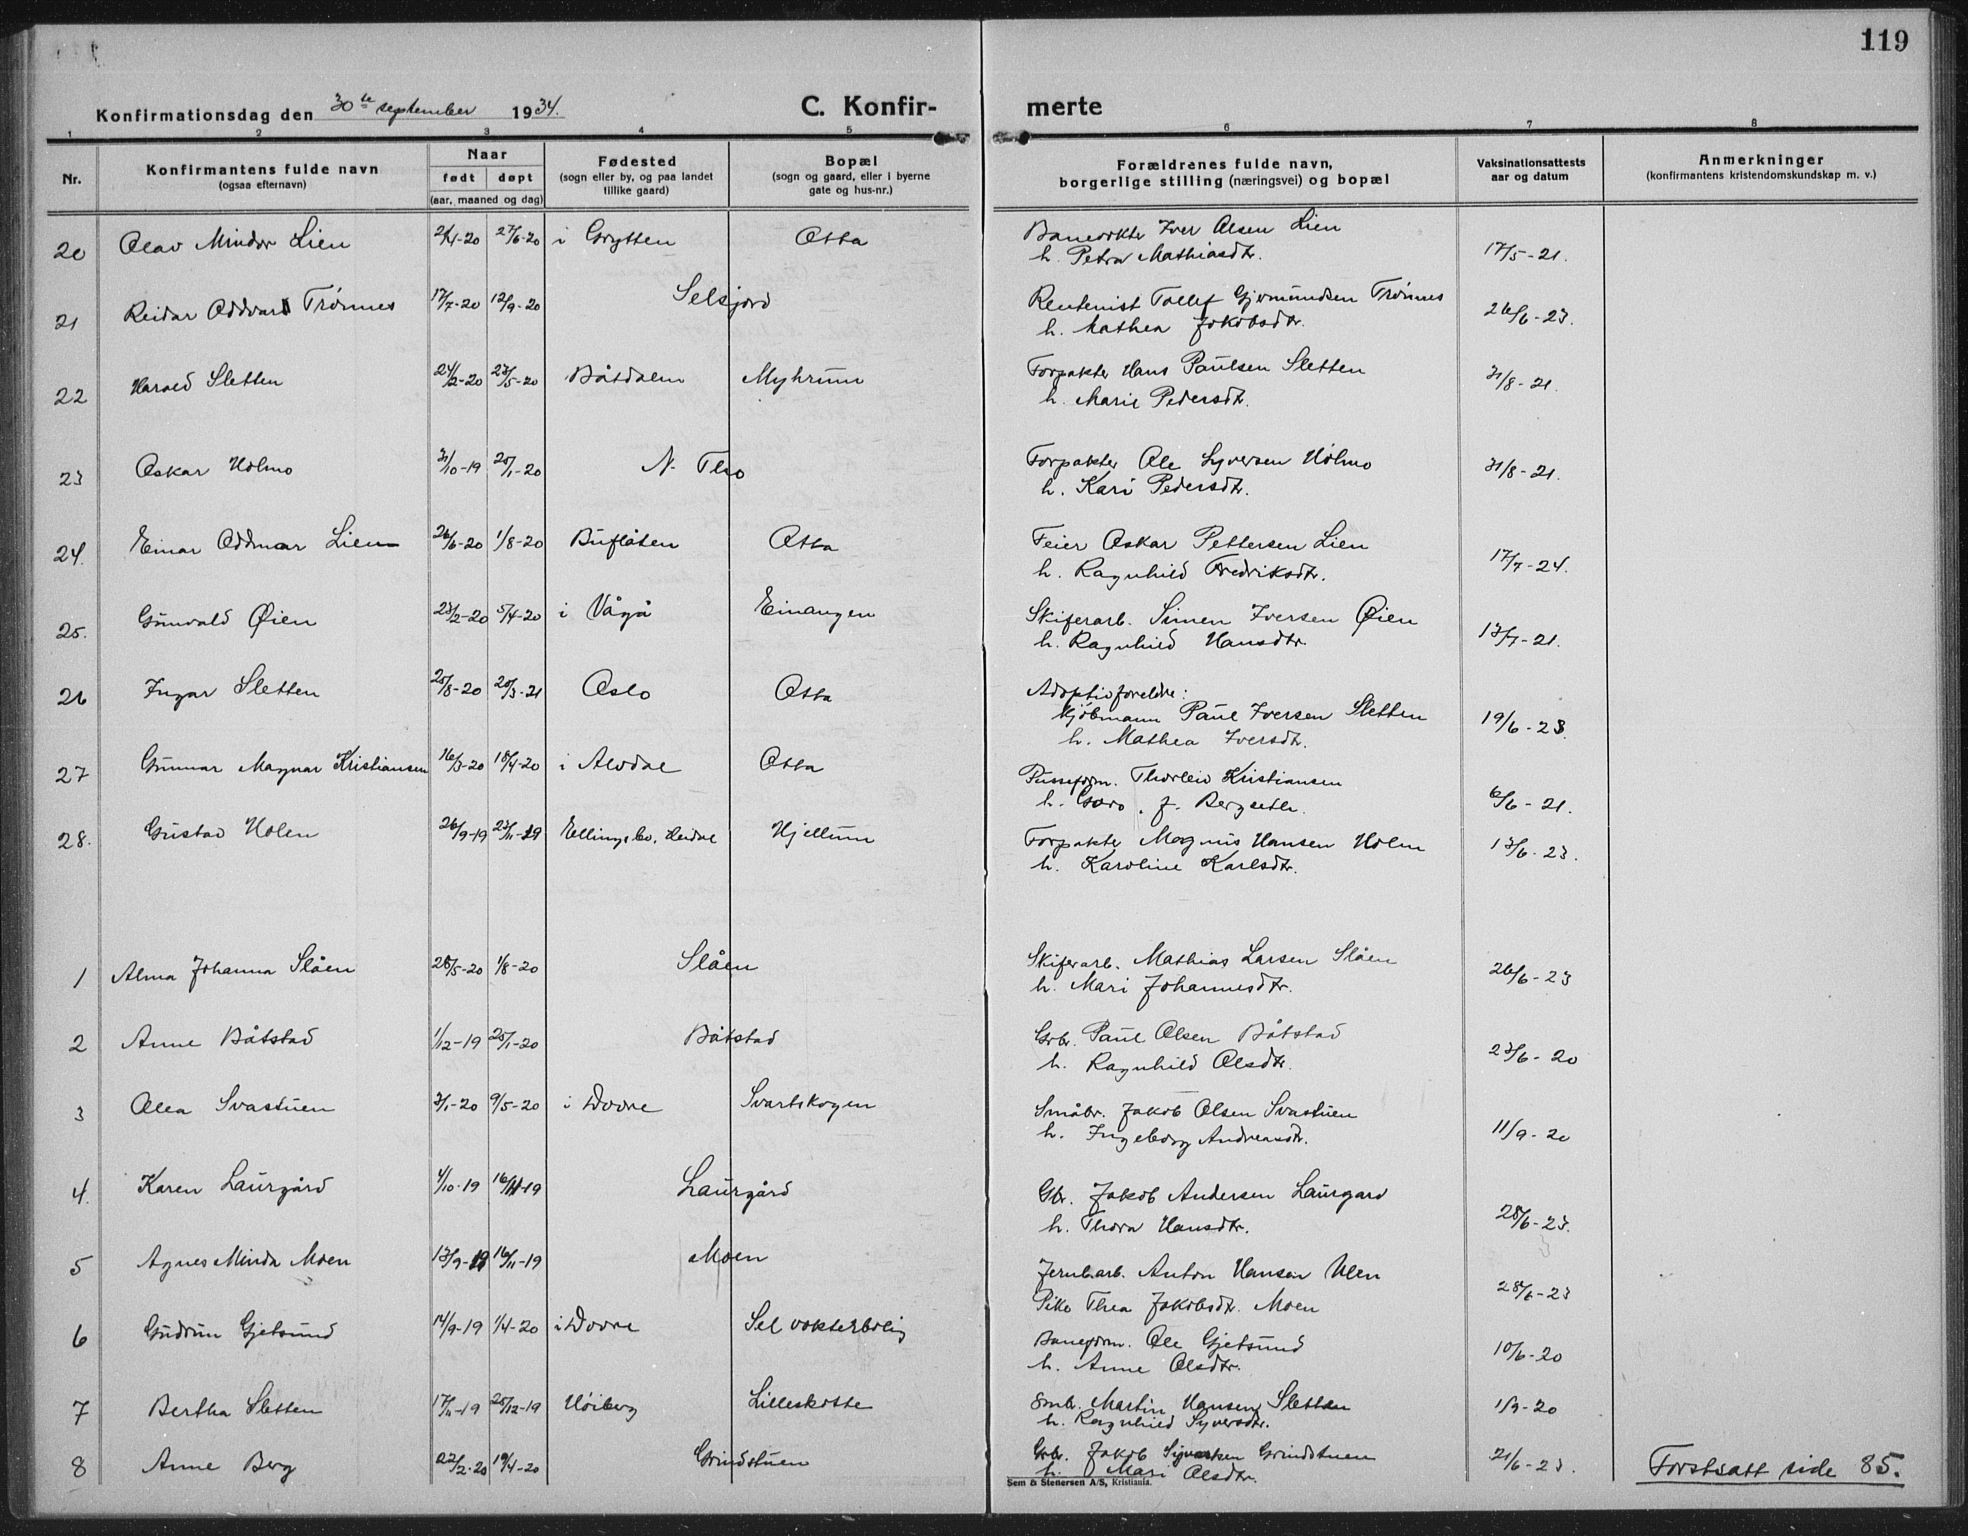 119
Konfirmationsdag den 30te september 1934.
C. Konfirmerte
1 2 3 4 5 6 7 8
Nr.
Konfirmantens fulde navn
(ogsaa efternavn)
Naar
født døpt
(aar, maaned og dag)
Fødested
(sogn eller by, og paa landet
tillike gaard)
Bopæl
(sogn og gaard, eller i byerne
gate og hus-nr.)
Forældrenes fulde navn,
borgerlige stilling (næringsvei) og bopæl
Vaksinationsattests
aar og datum
Anmerkninger
(konfirmantens kristendomskundskap m. v.)
20 Olav Mindor Lien 2/4-20 27/6-20 i Grytten Otta Banevokter Iver Olsen Lien 17/5-21.
h. Petra Mathiasdtr.
21 Reidar Oddvar Trønnes 17/7-20 12/9-20 Selsjord Rentenist Tollef Gjermundsen Trønnes 26/6-23.
h. Mathea Jakobsdtr.
22 Harald Sletten 24/2-20 23/5-20 Båtdalen Myhrum Forpakter Hans Paulsen Sletten 31/8-21.
h. Marie Pedersdtr.
23 Oskar Holmo 31/10-19 25/1-20 N. Tho Forpakter Ole Syversen Holmo 31/8-21.
h. Kari Pedersdtr.
24. Einar Oddmar Lien 26/6-20 1/8-20 Bufløten Otta Feier Oskar Pettersen Lien 17/7-24.
h. Ragnhild Fredriksdtr.
25. Gunvald Øien 23/2-20 5/4-20 i Vågå Einangen Skiferarb. Simen Iversen Øien 13/7-21.
h. Ragnhild Hansdtr.
26 Ingar Sletten 25/8-20 20/3-21 Oslo Otta Adoptivforeldre:
Kjøbmann Paul Iversen Sletten 19/6-23.
h. Mathea Iversdtr.
27 Gunnar Magnar Kristiansen 16/3-20 18/4-20 i Alvdal Otta Pusseform. Thorleiv Kristiansen 6/6-21.
h. Guro, f. Bergseth.
28. Gustav Holen 26/9-19 23/11-19 Ellingsbo, Heidal Hjellum Forpakter Magnus Hansen Holen 13/6-23.
h. Karoline Karlsdtr.
1 Alma Johanna Slåen 28/5-20 1/8-20 Slåen Skiferarb. Mathias Larsen Slåen 26/6-23
h. Mari Johannesdtr.
2 Anne Båtstad 1/12-19 25/1-20 Båtstad Gbr. Paul Olsen Båtstad 23/6-20
h. Ragnhild Olsdtr.
3 Olea Svastuen 3/1-20 9/5-20 i Dovre Svartskogen Småbr. Jakob Olsen Svastuen 11/9-20
h. Ingeborg Andreasdtr.
4. Karen Laurgård 4/10-19 16/11-19 Laurgård Gbr. Jakob Andersen Laurgard 28/6-23.
h. Thora Hansdtr.
5 Agnes Minda Moen 13/9-19 16/11-19 Moen Jernb.arb. Anton Hansen Ulen 28/6-23
Pike Thea Jakobsdtr. Moen
6 Gudrun Gjetsund 14/9-19 1/4-20 i Dovre Sel vokterbolig Baneform. Ole Gjetsund 10/6-20
h. Anne Olsdtr.
7 Bertha Sletten 17/11-19 25/12-19 Høiberg Lilleskotte Smbr. Martin Hansen Sletten 1/9-20
h. Ragnhild Syversdtr.
8 Anne Berg 22/2-20 19/4-20 Grindstuen Gbr. Jakob Syversen Grindstuen 21/6-23.
h. Mari Olsdtr.
Fortsatt side 85.
Sem & Stenersen A/S, Kristiania.